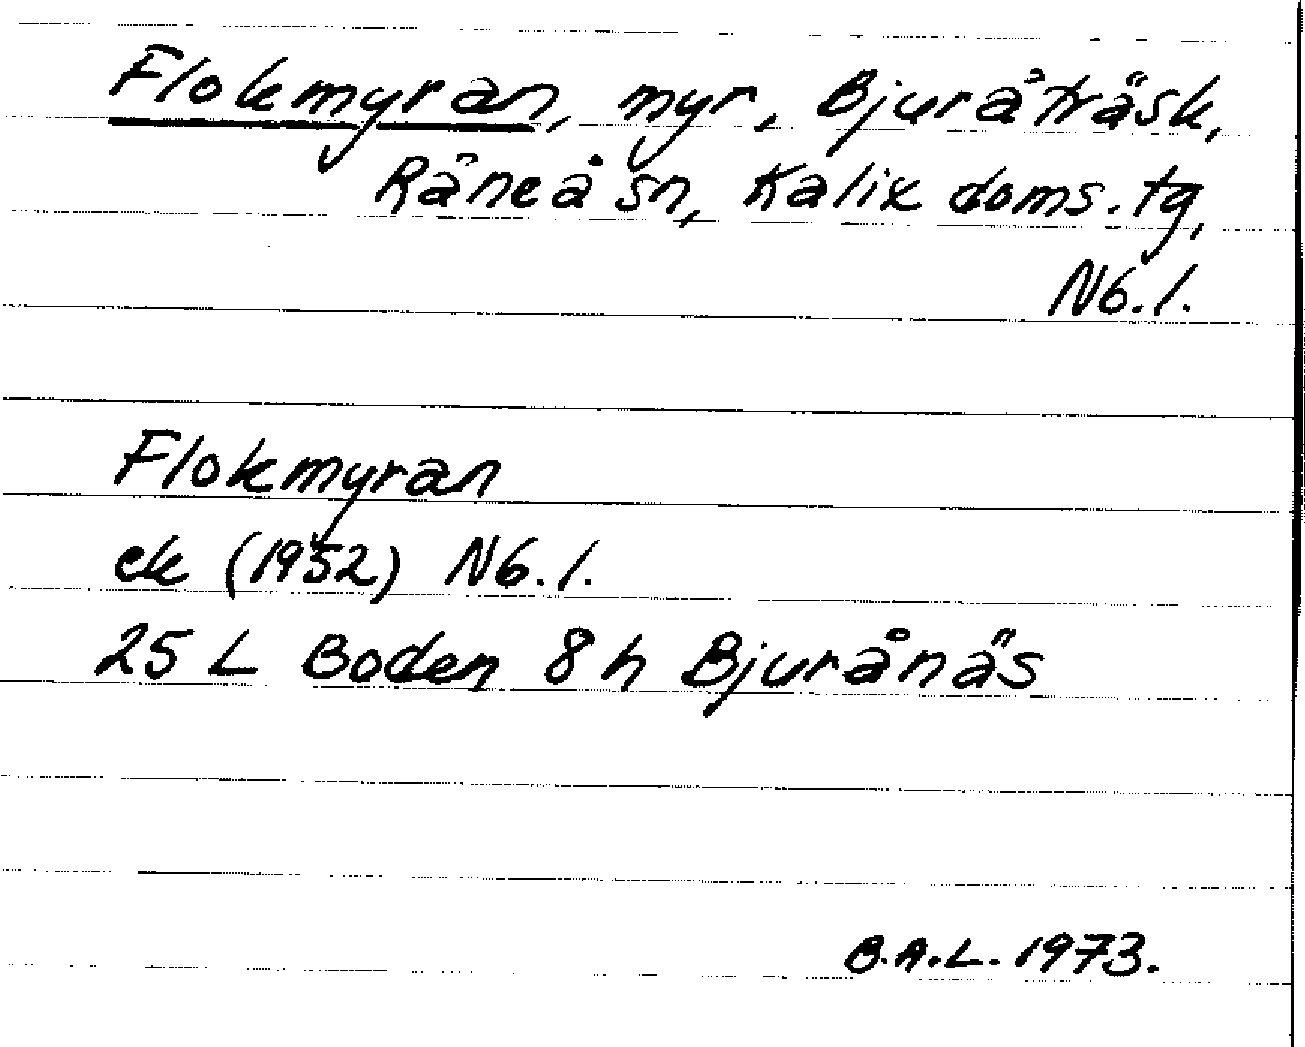 Flokmyran, myr, Bjuråträsk,
Råneå sn, Kalix doms. tg,
Nb. l.
Flokmyran
ek (1952) Nb. l.
25 L Boden 8 h Bjurånäs
B.A.L. 1973.